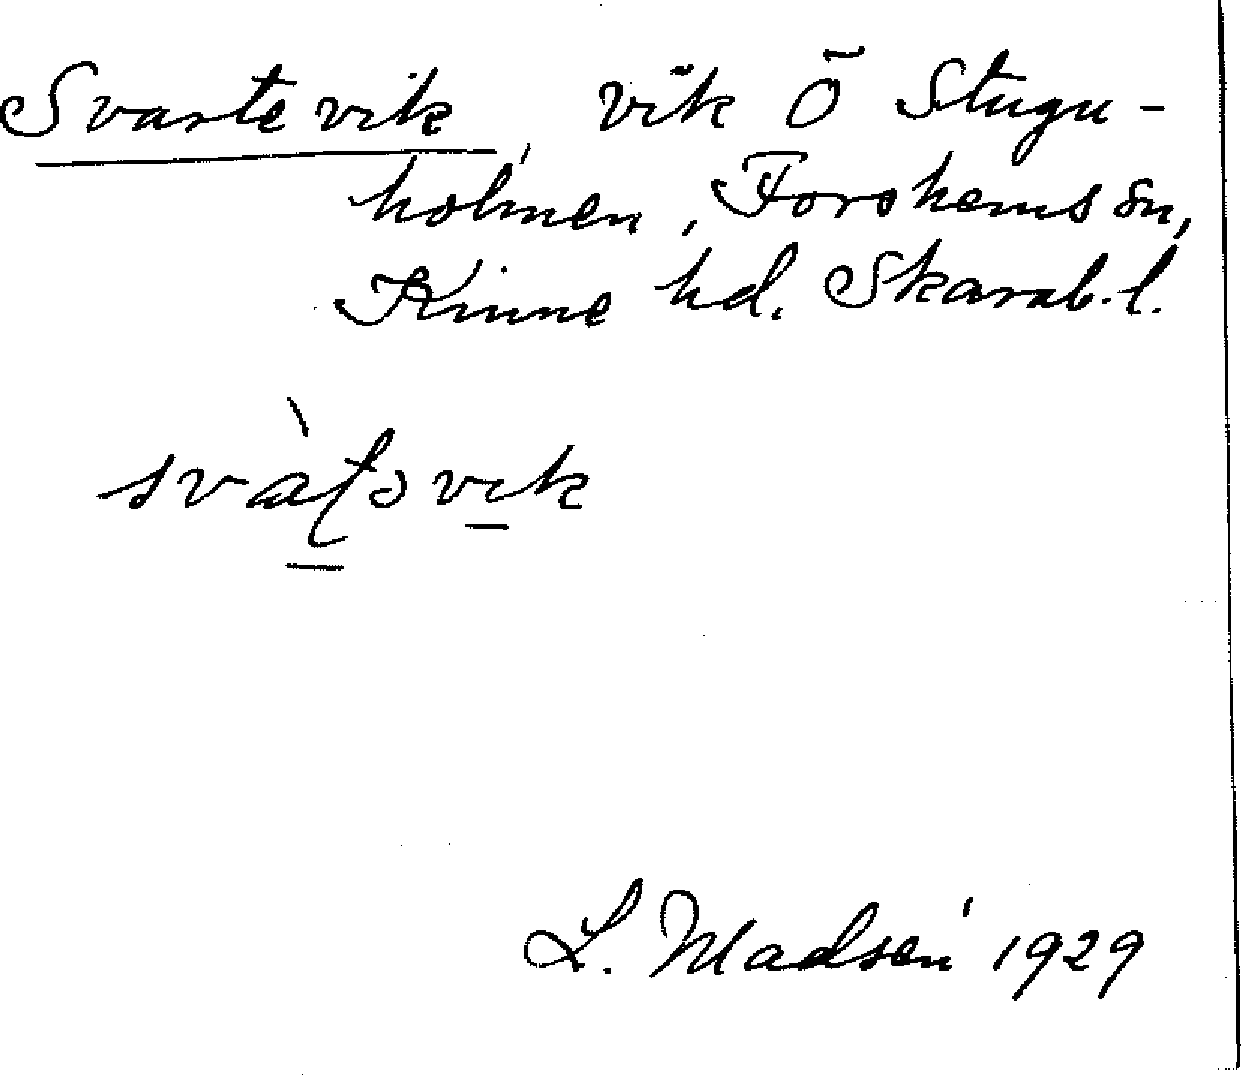 Svartevik, vik Ö Stugu-
holmen, Forshems sn,
Kinne hd. Skarab. l.
L. Madsén 1929